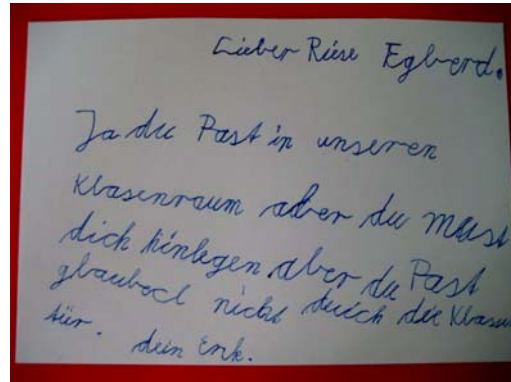 Lieber Riese Egberd.
Ja du Past in unseren
Klasenraum aber du must
dich hinlegen. aber du Past
glaubech nicht durch die Klasen
tür. dein Erik.